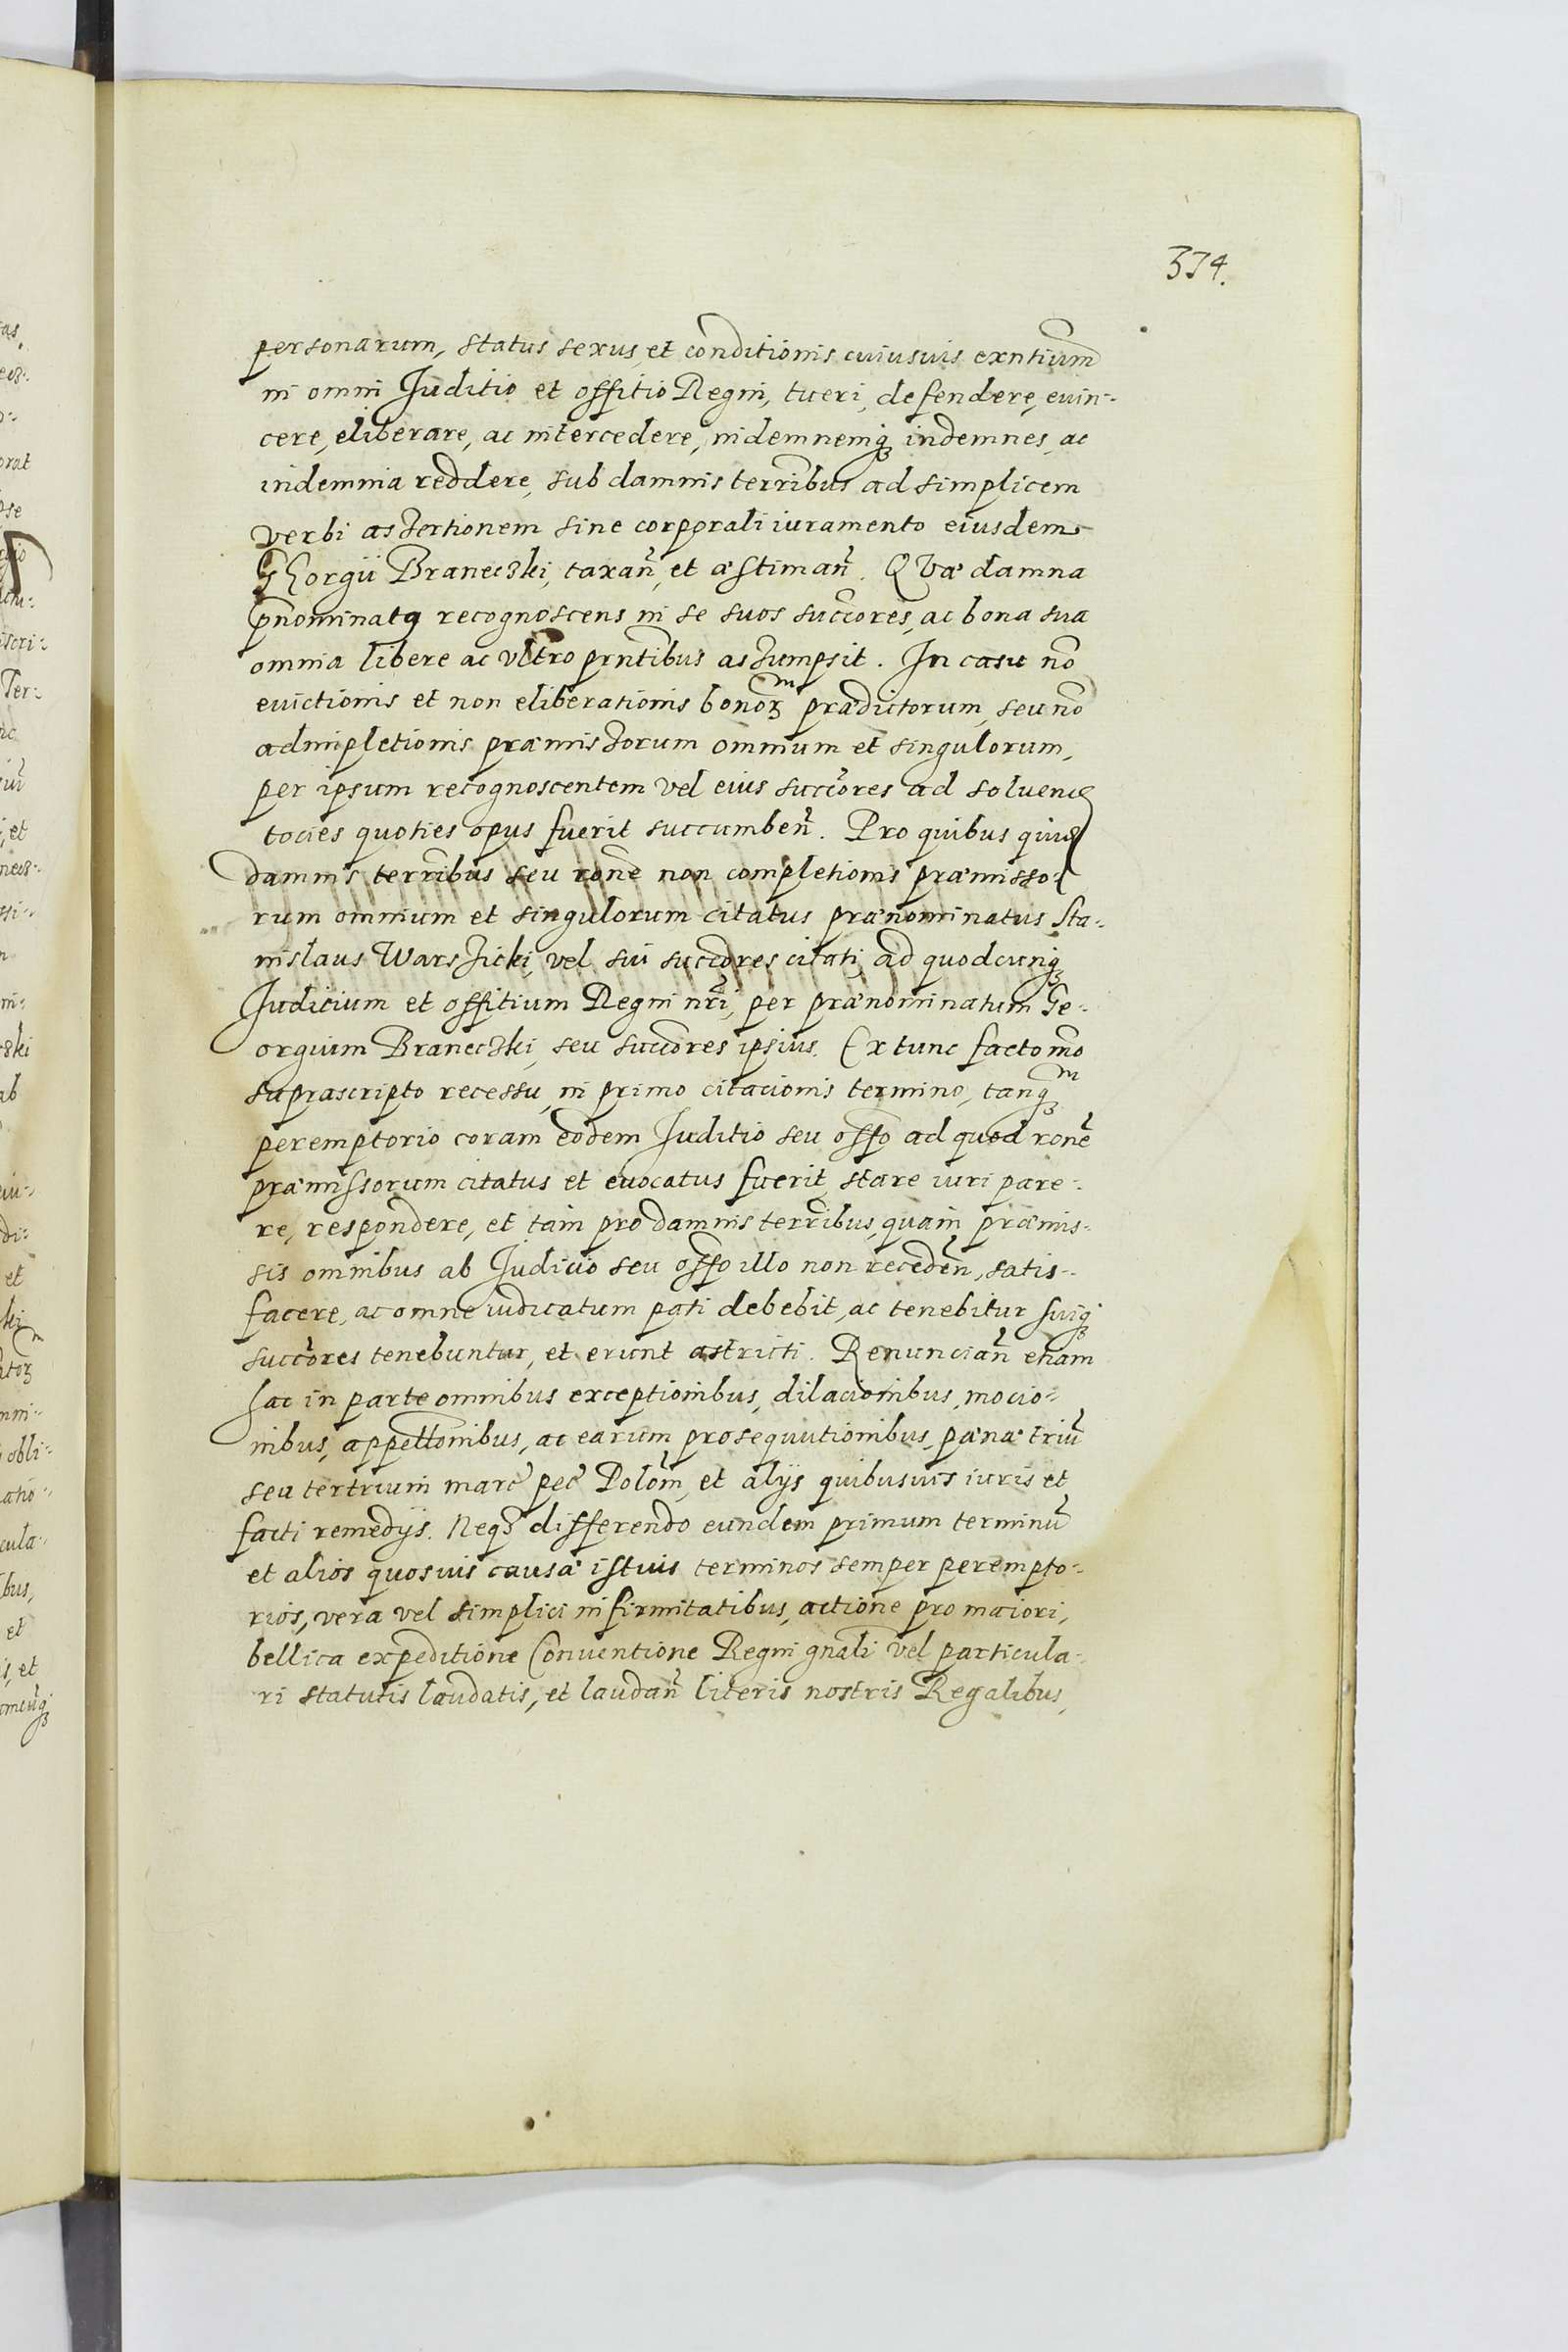 374.
personarum, status sexus, et conditionis cuiusuis exntium
in omni Juditio et offitio Regni, tueri, defendere, euin-
cere, eliberare, ac intercedere, indemnemq indemnes, ac
indemnia reddere, sub damnis terribus ad simplicem
verbi assertionem sine corporali iuramento eiusdem
GEorgii Branecski, taxan̄, et æstiman̄. QVæ damna
p̄nominatq recognoscens in se suos succōres, ac bona sua
omnia libere ac vltro prntibus assumpsit. In casu nō
euictionis et non eliberationis bonoꝝ prædictorum, seu nō
adimpletionis præmissorum omnium et singulorum,
per ipsum recognoscentem vel eius succōres ad soluend
tocies quoties opus fuerit succumben̄. Pro quibus quid
damnis terribus seu rōne non completionis præmisso-
rum omnium et singulorum citatus prænominatus Sta-
nislaus Warszicki, vel sui succōres citati, ad quodcunq
Judicium et offitium Regni nr̄i, per prænominatum Ge-
orgium Branecski, seu succōres ipsius. Extunc facto mō
suprascripto recessu, in primo citacionis termino, tanq m
peremptorio coram eodem Juditio seu offo ad quod rōne
præmissorum citatus et euocatus fuerit, stare iuri pare-
re, respondere, et tam pro damnis terribus, quam præmis-
sis omnibus ab Judicio seu offo illo non receden̄, satis-
facere, ac omne iudicatum pati debebit, ac tenebitur, suiq
succōres tenebuntur, et erunt astricti. Renuncian̄ etiam
hac in parte omnibus exceptionibus, dilacionibus, mocio-
nibus, appellōnibus, ac earum prosequutionibus, pæna triū
seu tertrium marc̄ pec̄ Polōm, et alijs quibusuis iuris et
facti remedijs. Neq differendo eundem primum terminū
et alios quosuis causæ istuis terminos semper perempto-
rios, vera vel simplici infirmitatibus, actione pro maiori,
bellica expeditione Conuentione Regni gnāli vel particula-
ri statutis laudatis, et laudan̄ literis nostris Regalibus,